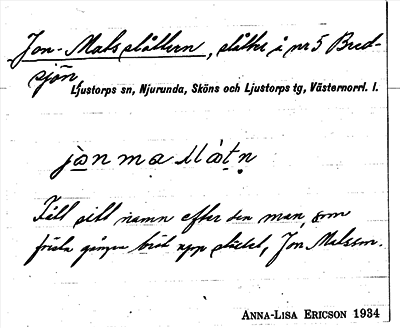 Jon-Matsslåttern, slåtter å nr 5 Bred-
sjön,
Ljustorps sn, Njurunda, Sköns och Ljustorps tg, Västernorrl. l.
Fått sitt namn efter den man, som
första gången bröt upp stället, Jon Matsson.
ANNA-LISA ERICSON 1934